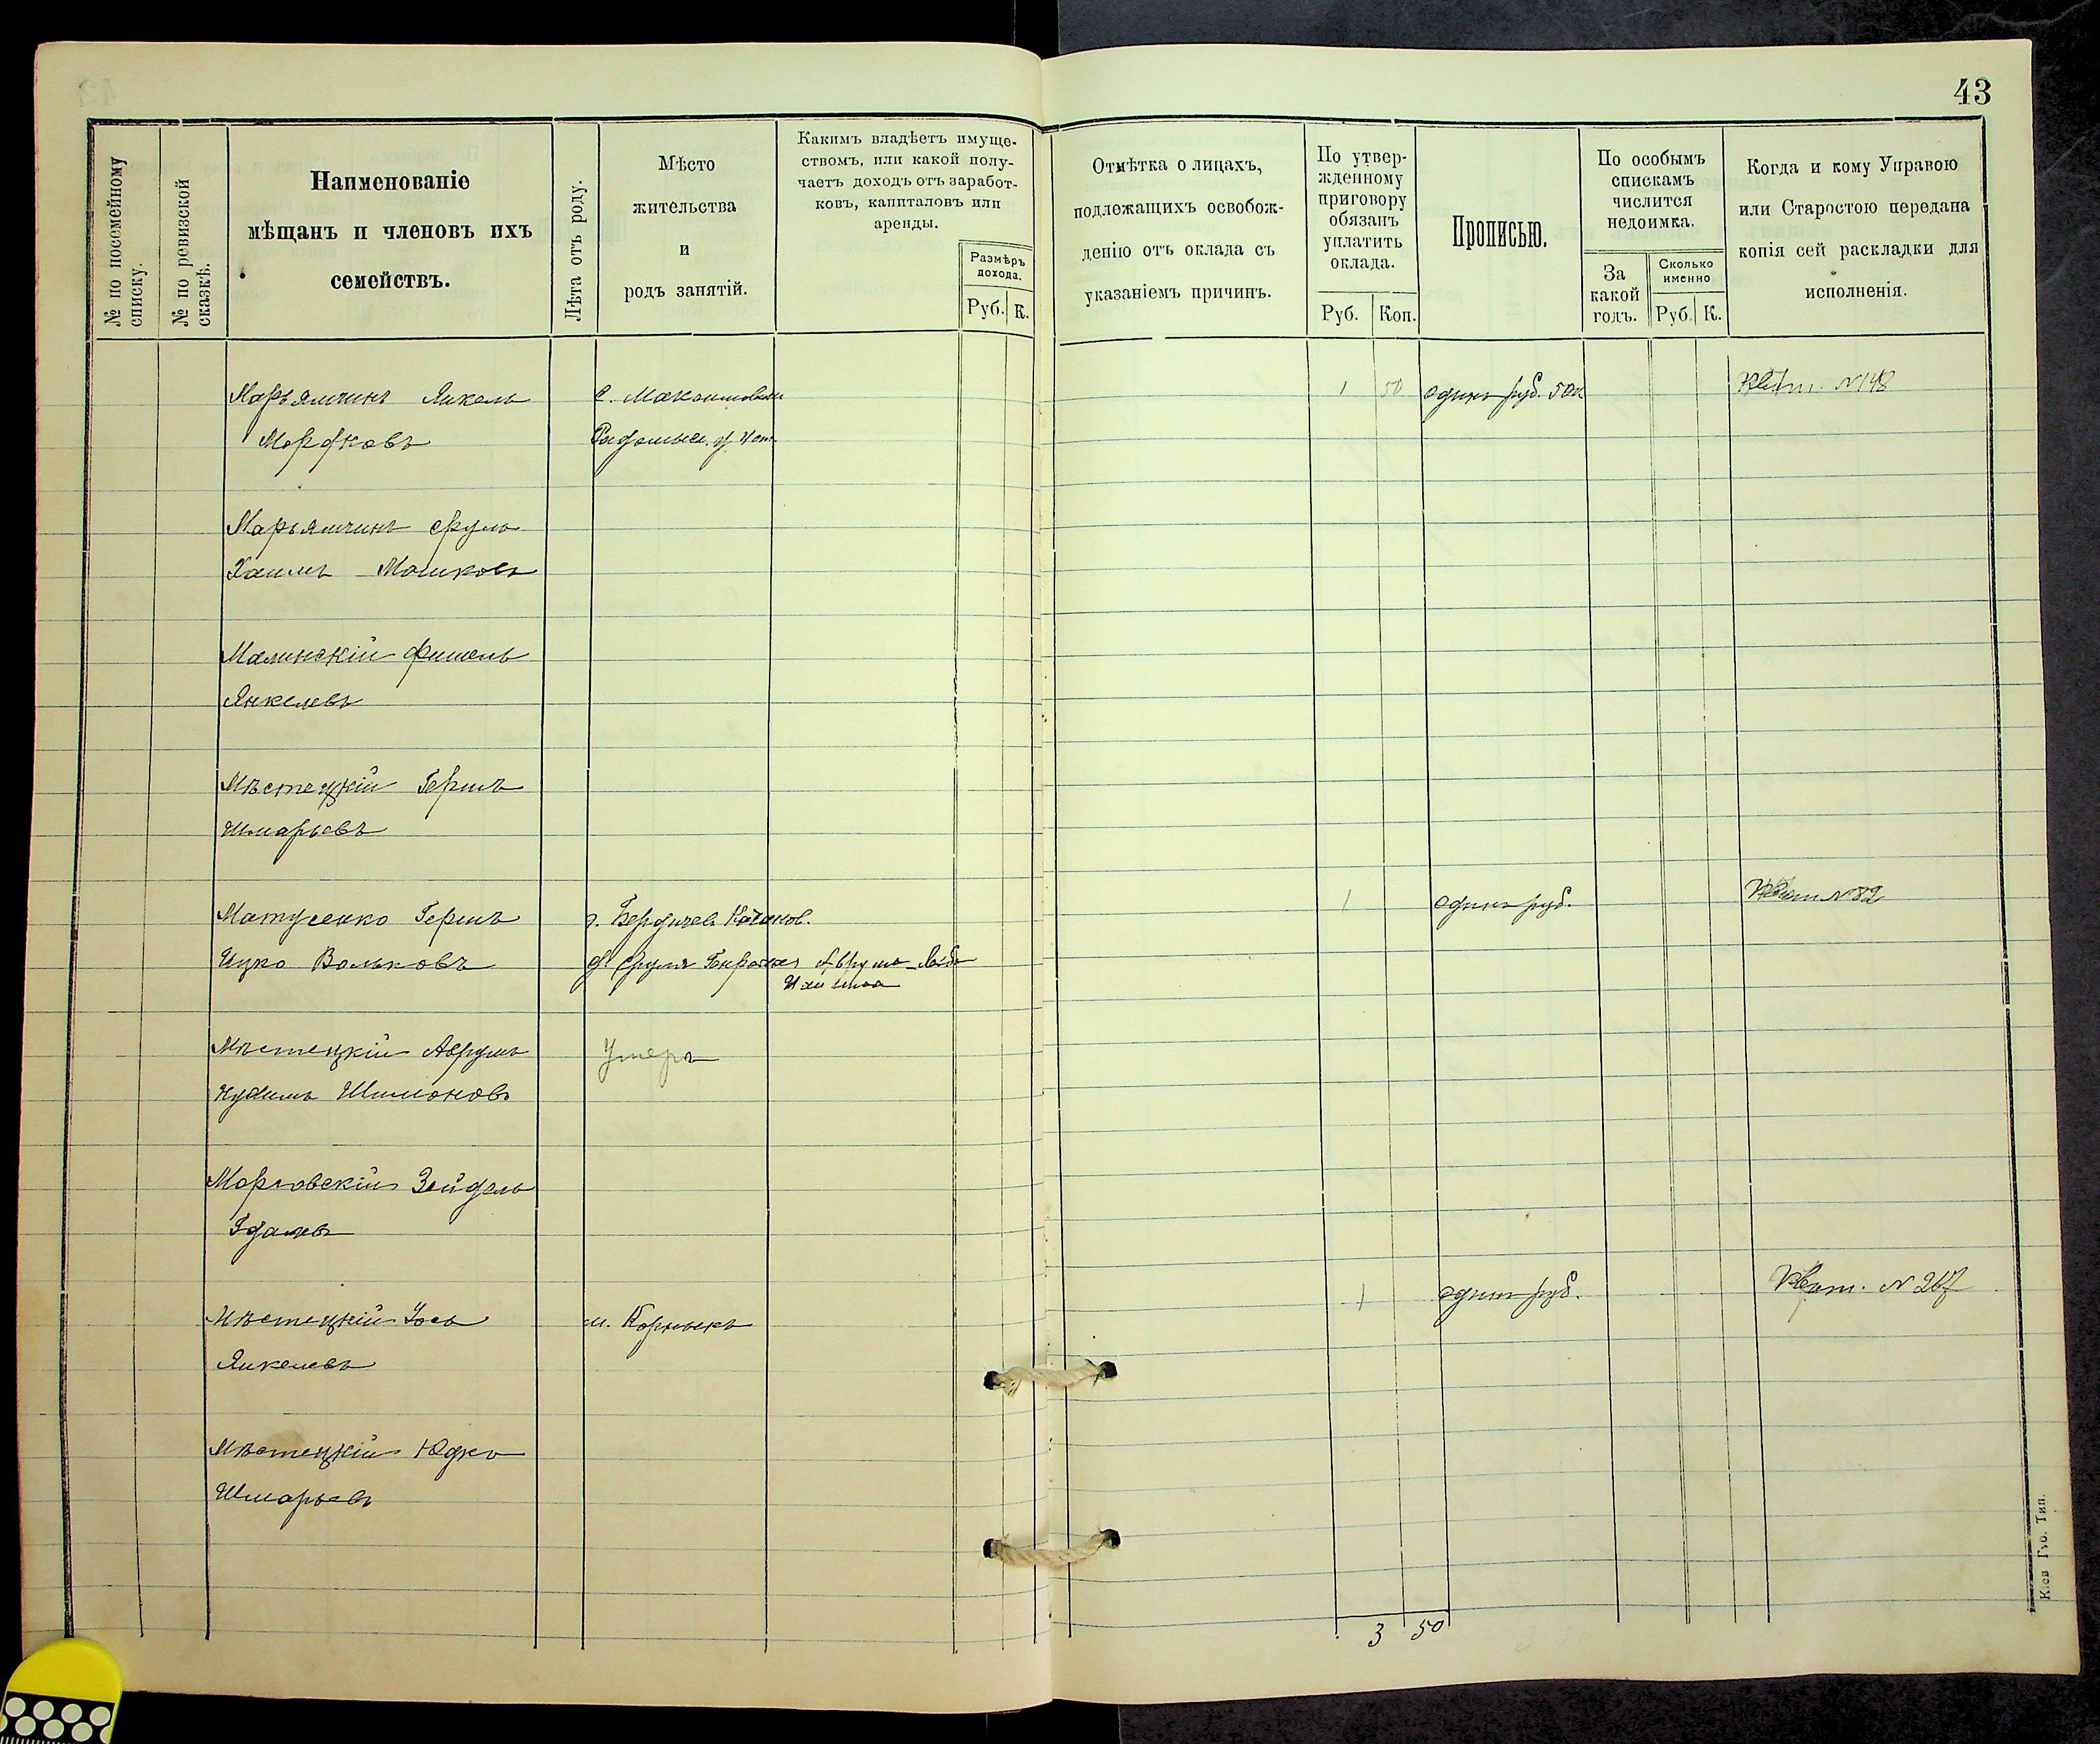 43
№ по посемейному
списку.
№ по ревизской
сказкѣ.
Наименованіе
мѣщанъ и членовъ ихъ
семействъ.
Лѣта отъ роду.
Мѣсто
жительства
и
родъ занятій.
Какимъ владѣетъ имуще-
ствомъ, или какой полу-
чаетъ доходъ отъ заработ-
ковъ, капиталовъ или
аренды.
Размѣръ
дохода.
Руб. К.
Отмѣтка о лицахъ,
подлежащихъ освобож-
денію отъ оклада съ
указаніемъ причинъ.
По утвер-
жденному
приговору
обязанъ
уплатить
оклада.
Руб. Коп.
Прописью.
По особымъ
спискамъ
числится
недоимка.
За
какой
годъ.
Сколько
именно
Руб. К.
Когда и кому Управою
или Старостою передана
копія сей раскладки для
исполненія.
Марьямчикъ Янкель с. Максимовичи 1 50 одинъ руб. 50к Квит. №148
Мордковъ Радомысл. у
Марьямчикъ Сруль
Хаимъ Мошковъ
Малинскій Фишель
Янкелевъ
Мѣстецкій Гершъ
Шмарьевъ
Матусенко Гершъ г. Бердичев. 1 одинъ руб. Квит №82
Ицко Вольковъ д. Сруля Аврумъ-Лейба
Мѣстецкій Аврумъ Умеръ
Нухимъ Шимоновъ
Морговскій Зейдель
Гдалевъ
Мѣстецкій Іось м. Корнинъ 1 одинъ руб. Квит. № 267
Янкелевъ
Мѣстецкій Юдко
Шмарьевъ
3 50
Кіев Гуо. Тип.